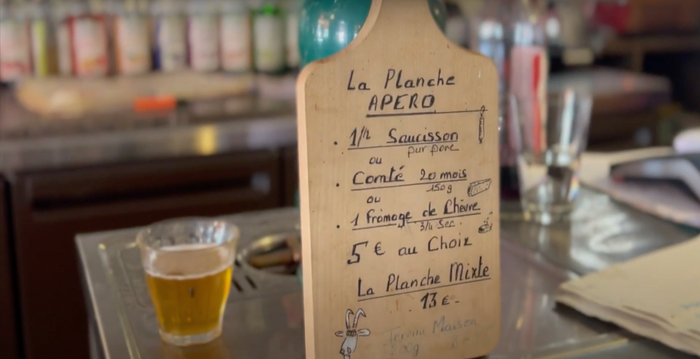 La Planche
APERO
. 1/2 Saucisson
pur porc
ou
. Comté 20 mois
150 g
ou
. 1 Fromage de Chèvre
3/4 Sec.
5€ au Choix
La Planche Mixte
. 13 €.
Maison